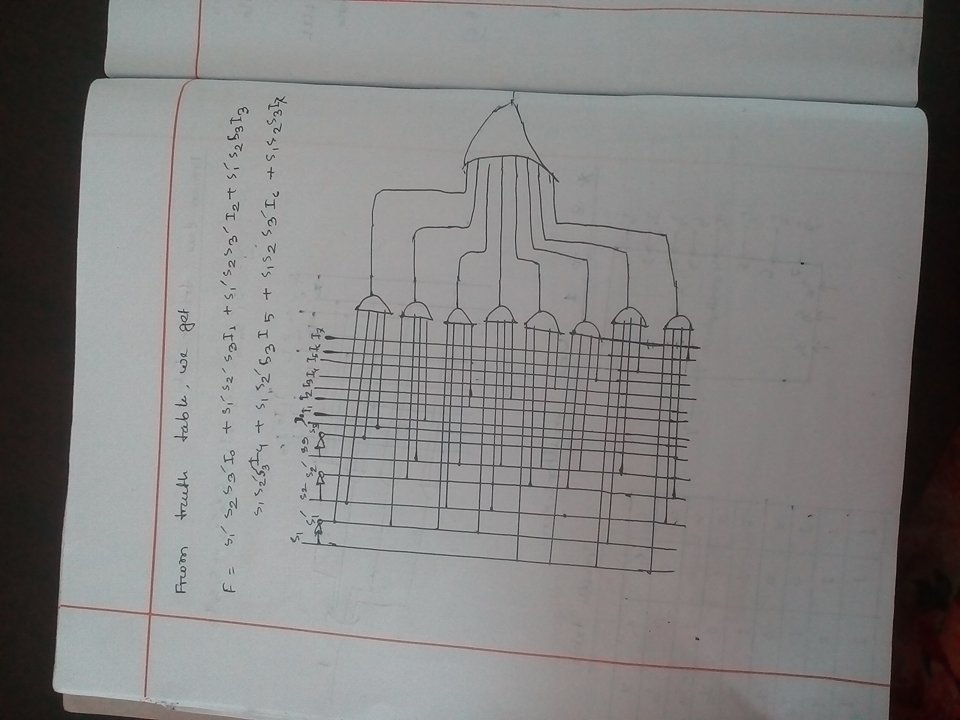 From truth table, we get
F = S₁′ S₂ S₃′ I₀ + S₁′ S₂′ S₃ I₁ + S₁′ S₂ S₃′ I₂ + S₁′ S₂ S₃ I₃
S₁ S₂′ S₃′ I₄ + S₁ S₂′ S₃ I₅ + S₁ S₂ S₃′ I₆ + S₁ S₂ S₃ I₇
S₁ S₁′ S₂ S₂′ S₃ S₃′ I₀ I₁ I₂ I₃ I₄ I₅ I₆ I₇